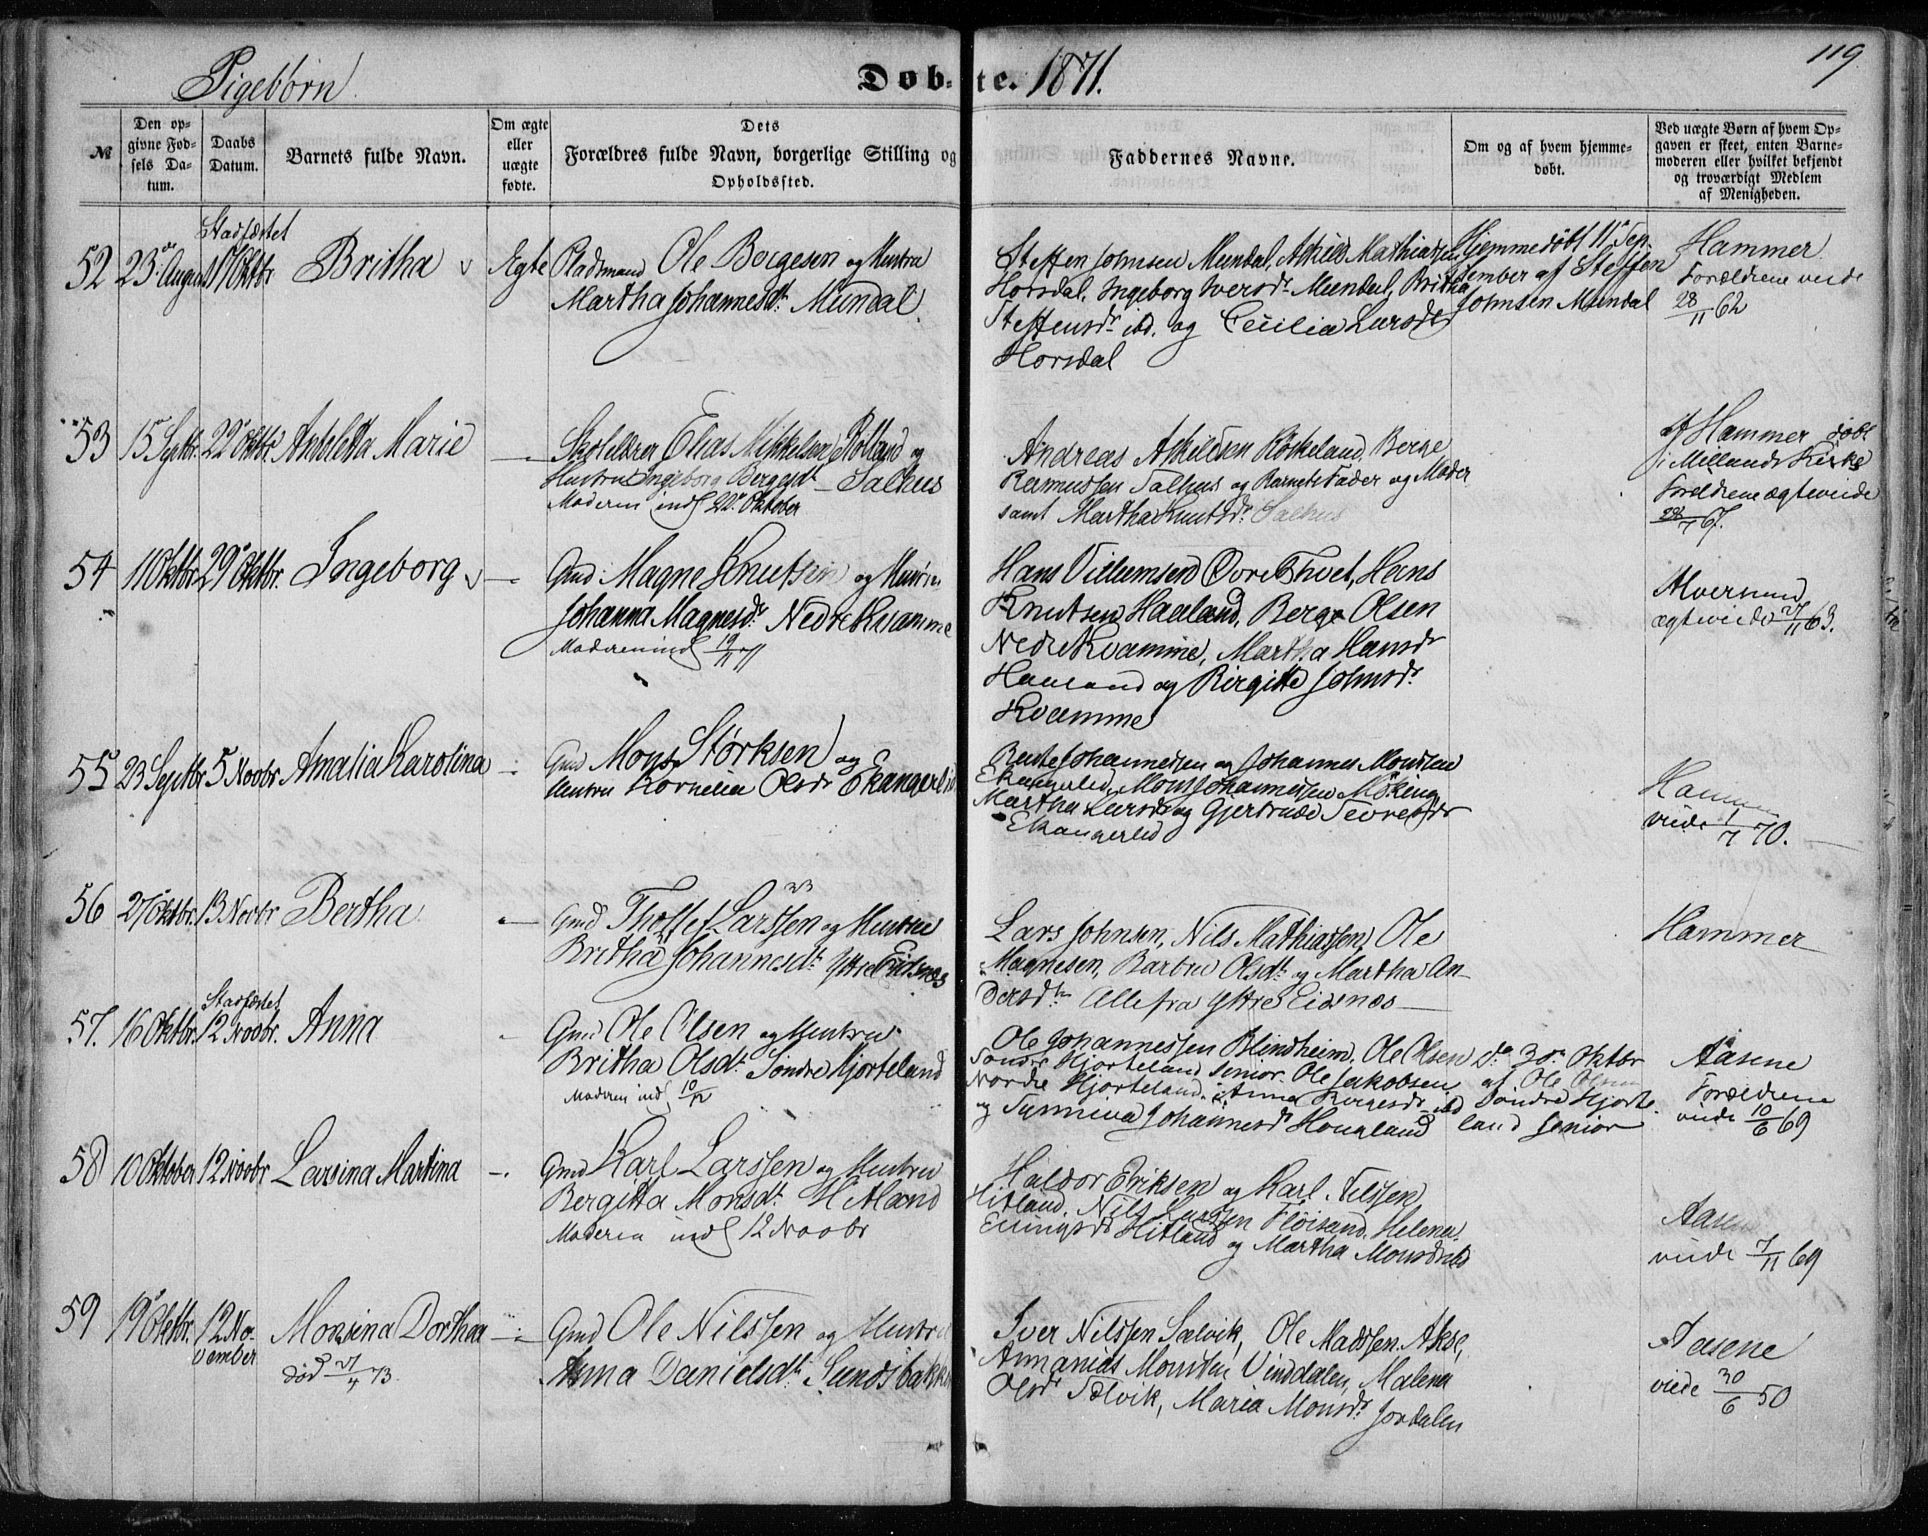 119
Pigebörn
Døbte. 1871.
№
Den op-
givne Fød-
sels Da-
tum.
Daabs
Datum.
Barnets fulde Navn.
Om ægte
eller
uægte
fødte.
Dets
Forældres fulde Navn, borgerlige Stilling og
Opholdssted.
Faddernes Navne.
Om og af hvem hjemme-
døbt.
Ved uægte Børn af hvem Op-
gaven er skeet, enten Barne-
moderen eller hvilket bekjendt
og troværdigt Medlem
af Menigheden.
52
23de August
Stadfæstet
Oktbr
Britha
Ægte
Pladsmand Ole Borgesen og Hustru
Martha Johannesdr. Mundal.
Steffen Johnsen Mundal, Askild Mathiassen
Horsdal, Ingeborg Iversdr Mundal, Britha
Steffensdr ibd. og Cecilia Larsdr
Horsdal
Hjemmedøbt 11te Sep-
tember af Steffen
Johnsen Mundal
Hammer
Forældrene viede
28/11 62
53
15 Septbr.
22de Oktbr
Marie
Skolelærer Elias Mikkelsen Rolland og
Hustru Ingeborg Bergesdr Salhus
Moderen indl 22. Oktober
Andreas Askildsen Röskeland, Berge
Rasmussen Salhus og Barnets Fader og Moder
samt Martha Knutsdr. Salhus
Hammer döbt
i Kirke
Forældrene ægteviede
67.
54
11 Oktbr
29de Oktbr.
Ingeborg
Gmd. Magne Knutsen og Hustru
Johanna Magnesdr. Nedre Kvamme
Moderen indl 19/11 71
Hans Villumsen Övre Tvet, Hans
Knutsen Haaland, Berge Olsen
Nedre Kvamme, Martha Hansdr
Haaland og Birgitte Johnsdr.
Kvamme
Alversund
ægteviede 27/11 63.
55
23 Septbr
5 Novbr
Amalia Karolina
Gmd Mons Størksen og
Hustru Kornelia Olsdr Ekangerlid
Johannessen og Johannes Monssen
Ekangerlid, Mons Johannessen Möking
Martha Larsdr og Gjertrude
Ekangerlid
Hammer
viede 1/7 70.
56
27 Oktbr.
13 Novbr
Bertha
Gmd Larssen og Hustru
Britha Johannesdr. Ytre Eidsnes
Lars Johnsen, Nils Mathiassen, Ole
Magnesen, Barbru Olsdr. og Martha An-
dersdr. Alle fra Ytre Eidsnes
Hammer
57.
16 Oktbr.
Stadfæstet
12 Novbr.
Anna
Gmd Ole Olsen og Hustru
Britha Olsdr. Söndre Hjorteland
Moderen indl 10/12
Ole Johannessen Blindheim, Ole Olsen
Söndre Hjorteland senior, Ole Jakobsen
Nordre Hjorteland, Anna Borgesdr ibd
og Synneva Johannesdr Hougland
Do 30te Oktbr
af Ole Olsen
Söndre Hjorte-
land senior
Aasene
Forældrene
viede 10/6 69
58
10 Oktober
12 Novbr
Larsina Martina
Gmd Karl Larssen og Hustru
Bergitta Monsdr. Hitland
Moderen indl 12 Novbr
Haldor Eriksen og Karl Nilssen
Hitland, Nils Larssen Flöisand, Helena
Hitland og Martha Monsdr ibd
Aasene
viede 7/11 69
59
19de Oktbr.
12 No-
vember
Monsina Dorthea
död 27/4 73.
Gmd Ole Nilssen og Hustru
Anna Danielsdr. Sundsbakken
Iver Nilssen Sælvik, Ole Madssen Akse,
Annanias Monssen Vinddalen, Malena
Olsdr Sælvik, Maria Monsdr. Jordalen
Aasene
viede 30/6 50